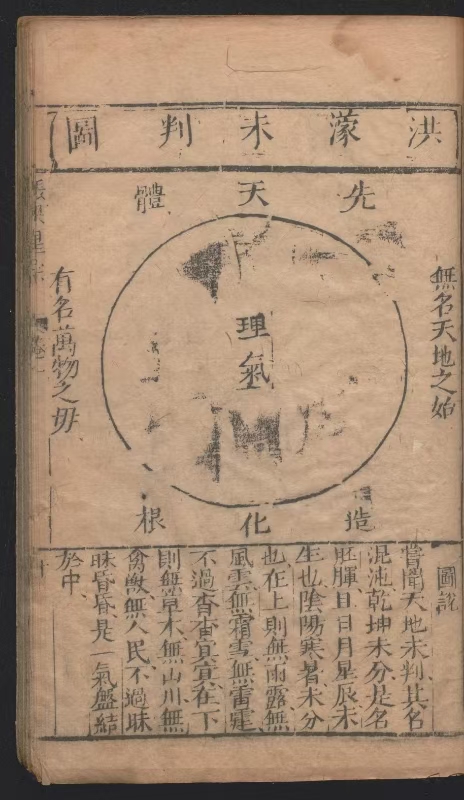 洪濛未判圖
先天體
無名天地之始
理氣
有名萬物之毋
造化根
圖說
嘗聞天地未判其名
混沌乾坤未分是名
胚腪日月星辰未
生也陰陽寒暑未分
也在上則無雨露無
風雲無霜雪無雷霆
不過杳杳冥冥在下
則無草木無山川無
禽獸無人民不過昧
昧昏昏是一氣盤結
於中